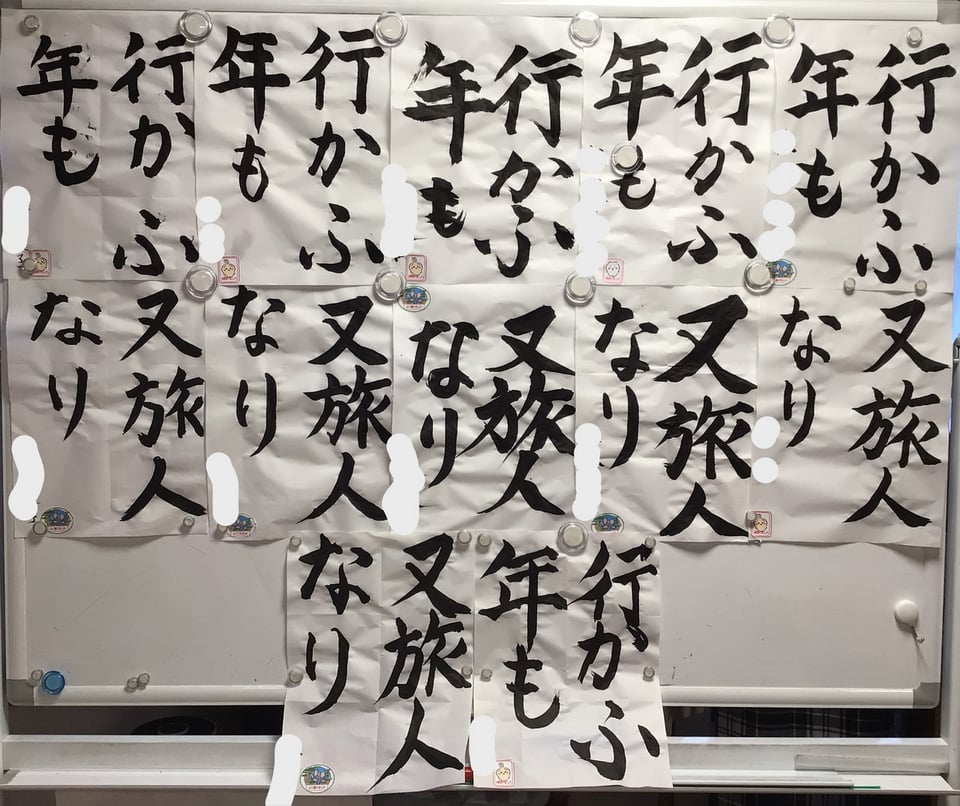 行かふ
年も
行かふ
年も
行かふ
年も
行かふ
年も
行かふ
年も
又旅人
なり
又旅人
なり
又旅人
なり
又旅人
なり
又旅人
なり
行かふ
年も
又旅人
なり